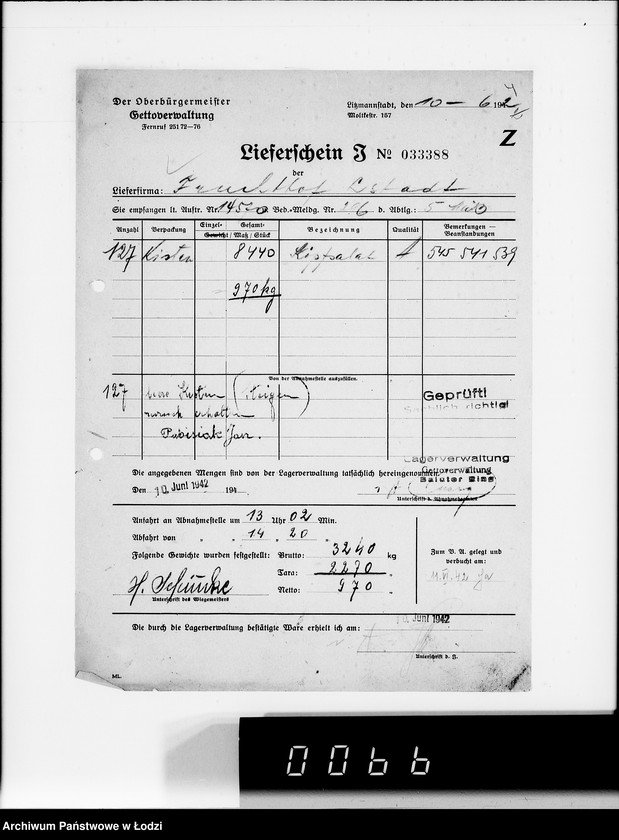 Der Oberbürgermeister
Gettoverwaltung
Fernruf 25172-76
Litzmannstadt, den 10 - 6 1942
Moltkestr. 157
Z
Lieferschein J № 033388
der
Lieferfirma: Fruchthof L'stadt
Sie empfangen lt. Auftr. Nr. Bed.-Meldg. Nr. d. Abtlg.:
Anzahl Verpackung Einzel- Gesamt- Bezeichnung Qualität Bemerkungen —
Gewicht / Maß / Stück Beanstandungen
127 Kisten 8440 Kopfsalat A 545 541 539
970 kg
Von der Abnahmestelle auszufüllen.
127 leere Kisten (Steigen)
zurück erhalten
Pabisiak Jan.
Geprüft!
Sachlich richtig!
Lagerverwaltung
Gettoverwaltung
Baluter Ring
Die angegebenen Mengen sind von der Lagerverwaltung tatsächlich hereingenommen.
Den 10. Juni 1942 194
Unterschrift d. Abnahmestelle
Anfahrt an Abnahmestelle um 13 Uhr 02 Min.
Abfahrt von " " 14 " 20 "
Folgende Gewichte wurden festgestellt: Brutto: 3240 kg
Tara: 2270 "
Netto: 970 "
Unterschrift des Wiegemeisters
Zum B. A. gelegt und
verbucht am:
11. VI. 42
Die durch die Lagerverwaltung bestätigte Ware erhielt ich am: 10. Juni 1942
Unterschrift d. J.
ML.
0066
Archiwum Państwowe w Łodzi